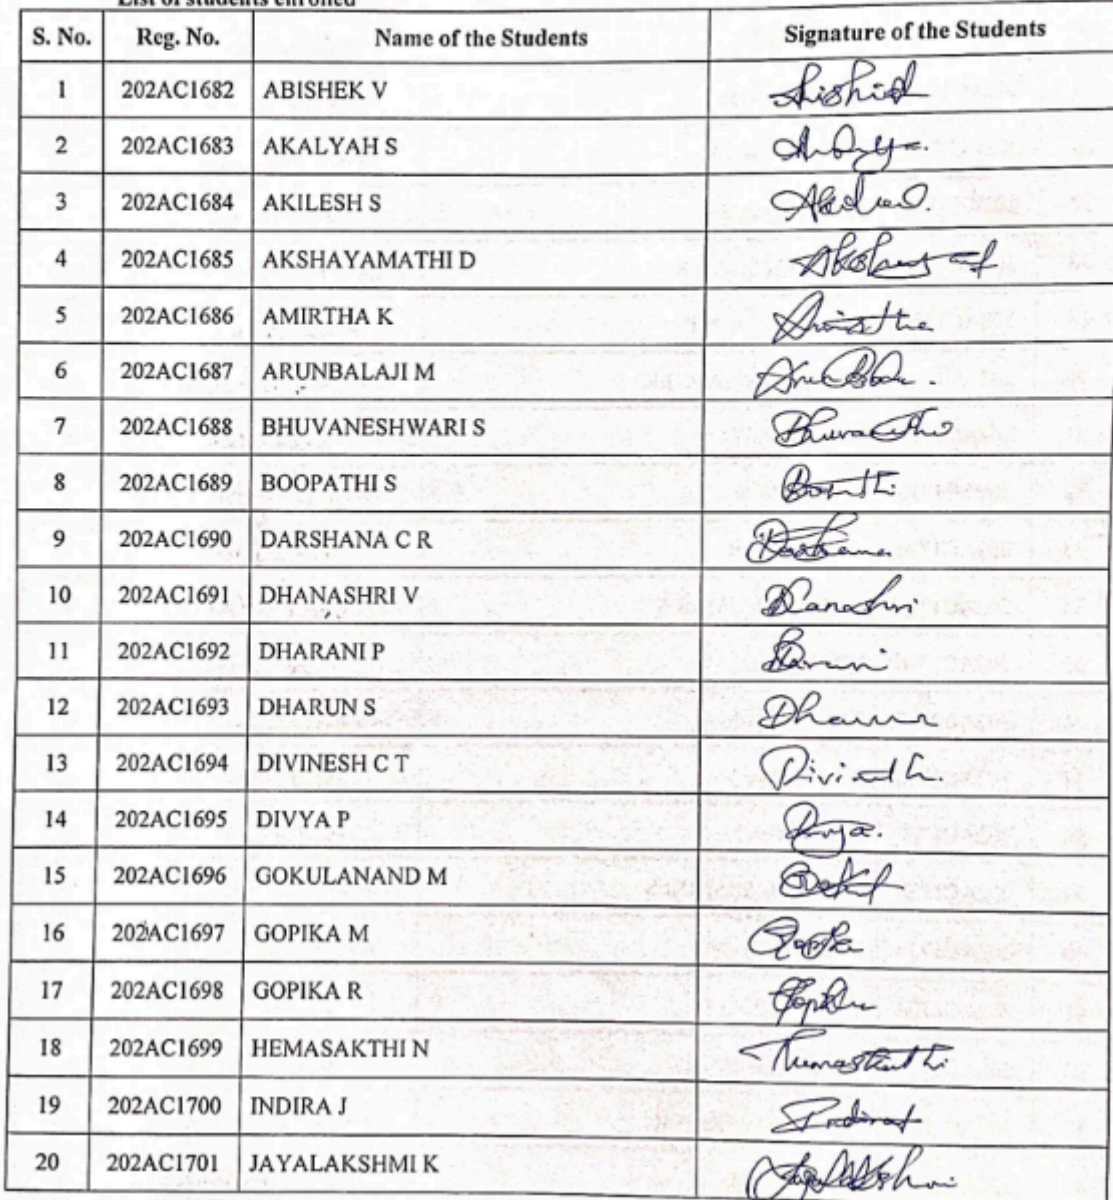 List of students enrolled
S. No. Reg. No. Name of the Students Signature of the Students
1 202AC1682 ABISHEK V
2 202AC1683 AKALYAH S
3 202AC1684 AKILESH S
4 202AC1685 AKSHAYAMATHI D
5 202AC1686 AMIRTHA K
6 202AC1687 ARUNBALAJI M
7 202AC1688 BHUVANESHWARI S
8 202AC1689 BOOPATHI S
9 202AC1690 DARSHANA C R Darshana
10 202AC1691 DHANASHRI V Dhanashri
11 202AC1692 DHARANI P
12 202AC1693 DHARUN S
13 202AC1694 DIVINESH C T
14 202AC1695 DIVYA P Divya.
15 202AC1696 GOKULANAND M
16 202AC1697 GOPIKA M Gopika
17 202AC1698 GOPIKA R
18 202AC1699 HEMASAKTHI N
19 202AC1700 INDIRA J
20 202AC1701 JAYALAKSHMI K